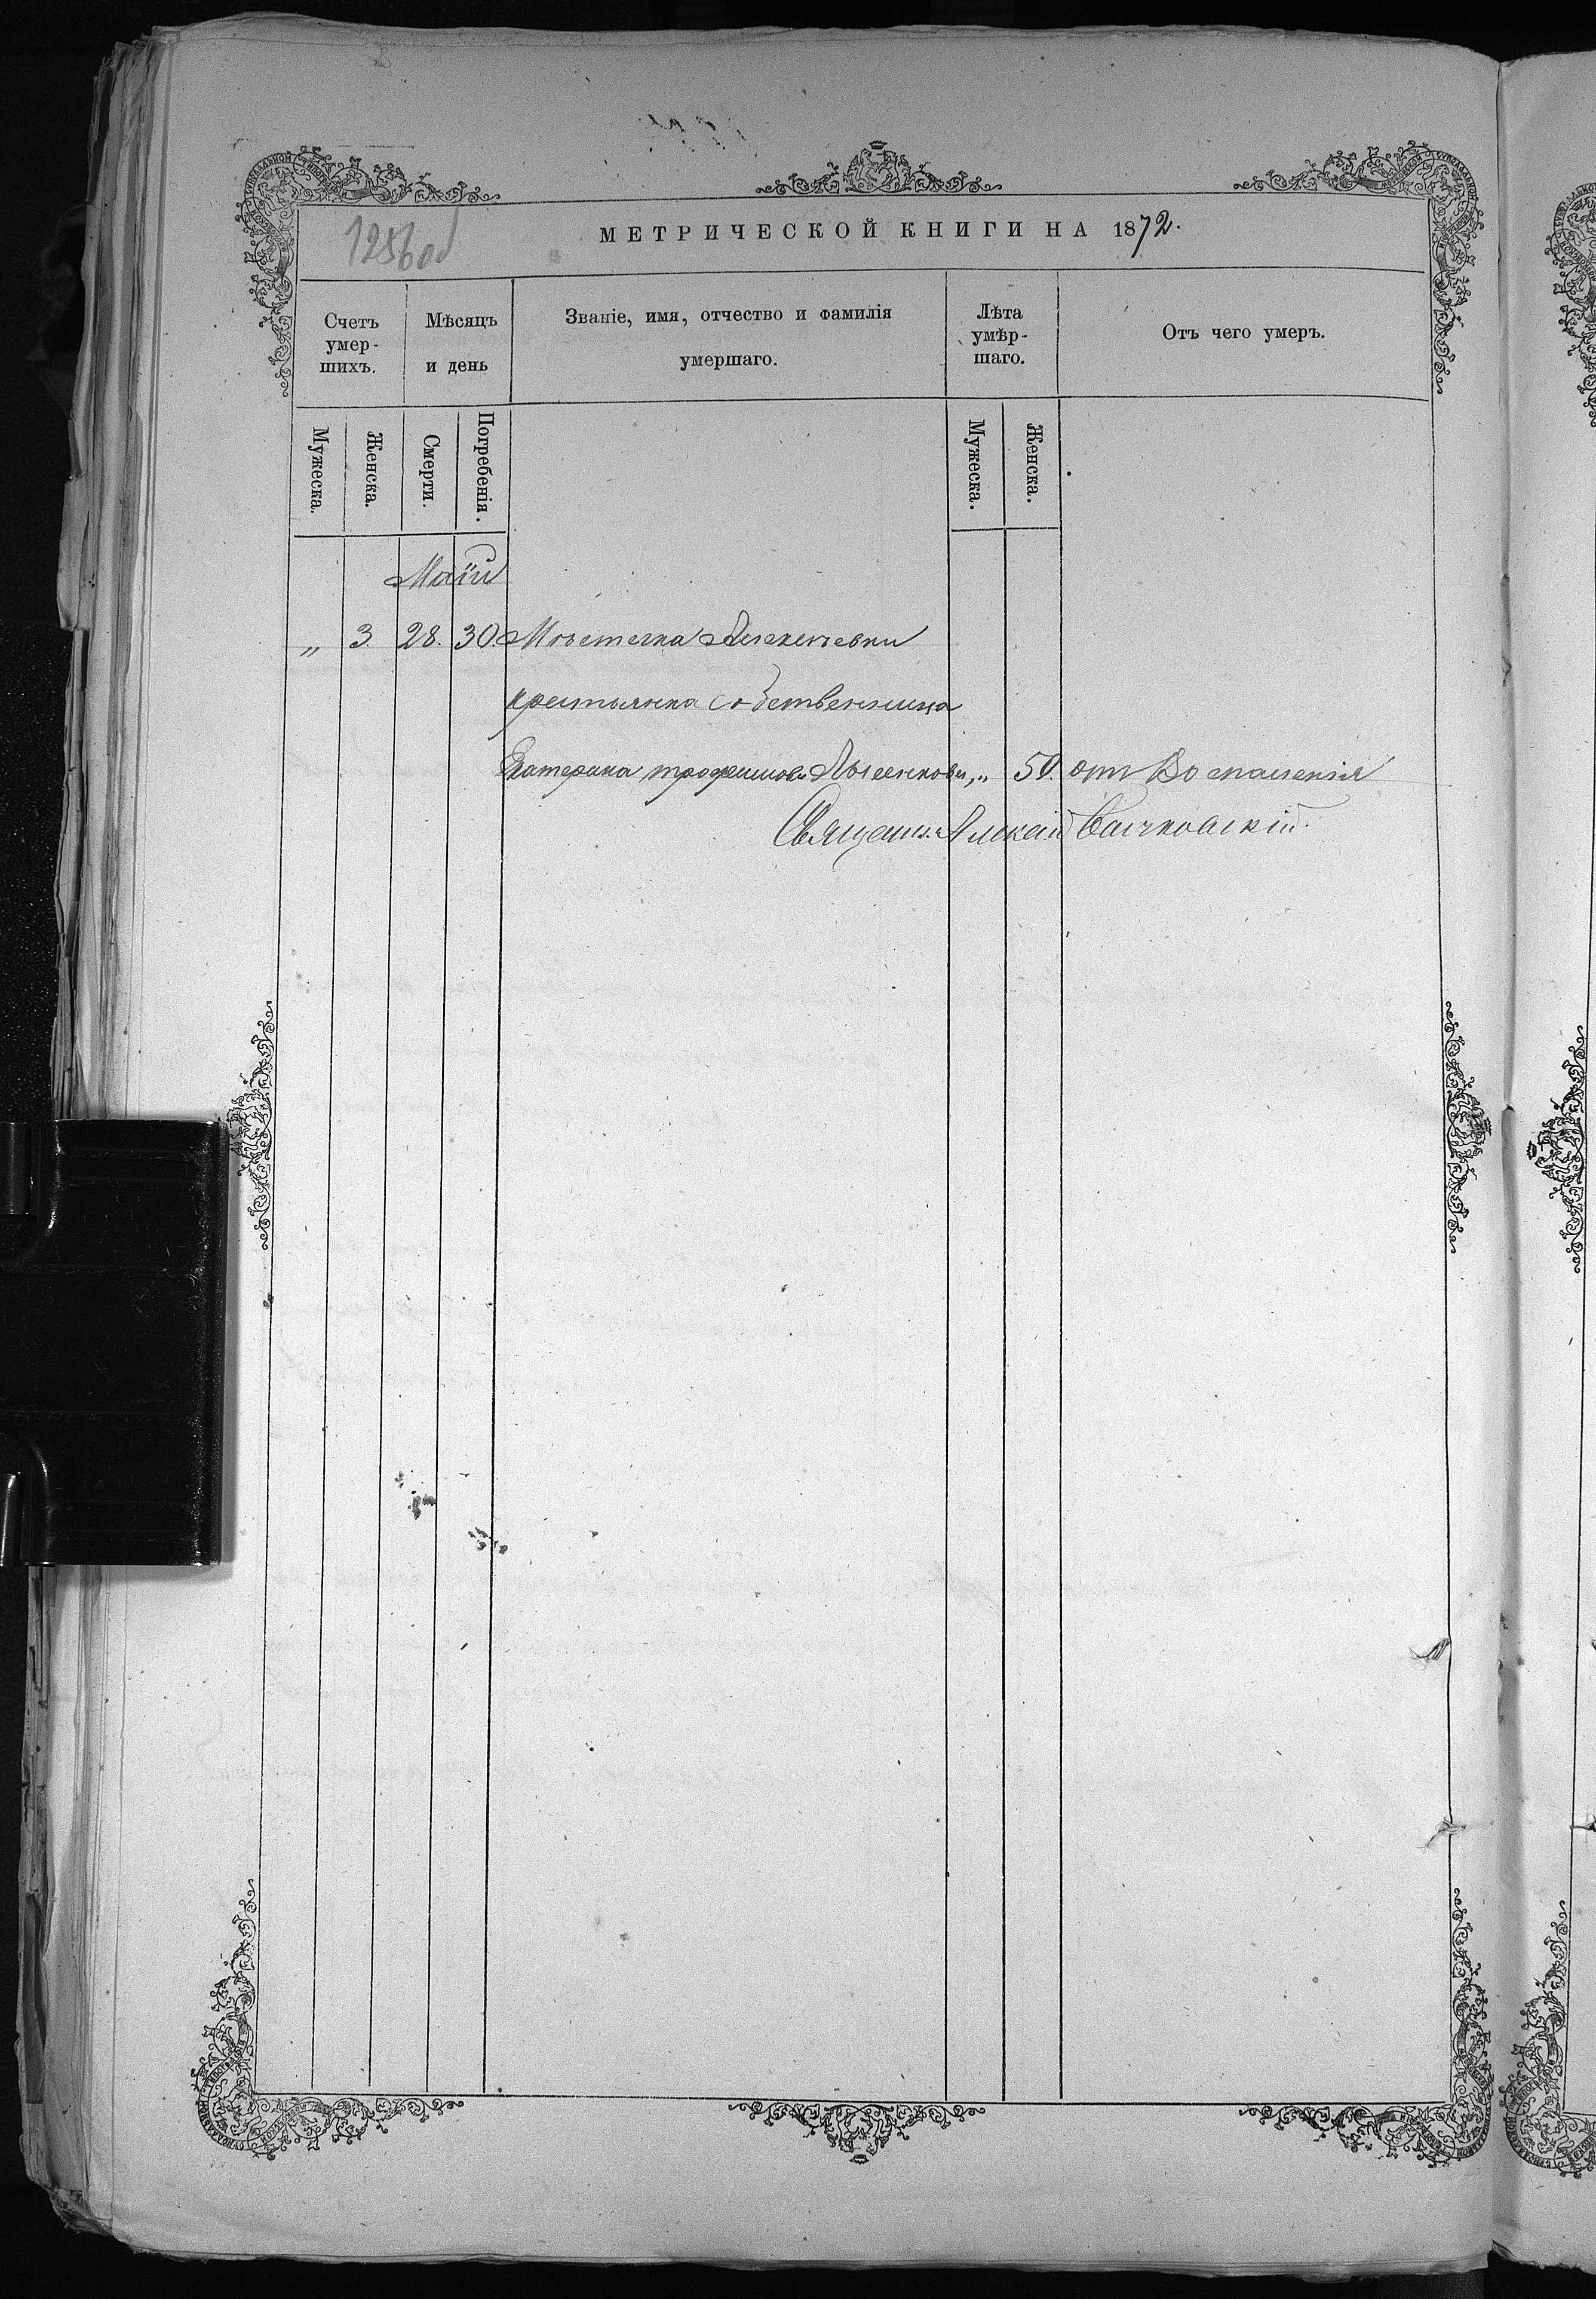 1286 об
МЕТРИЧЕСКОЙ КНИГИ НА 1872.
Счетъ умер-шихъ.
Мѣсяцъ и день
Званіе, имя, отчество и фамилія умершаго.
Лѣта умѣр-шаго.
Отъ чего умеръ.
Мужеска.
Женска.
Смерти.
Погребенія.
Мужеска.
Женска.
Маій
„ 3. 28. 30. Мѣстечка Алексѣевки
крестьянка собственница
Екатерина трофимова Лысенкова, „ 50. отъ Воспаленія
Священ. Алексій